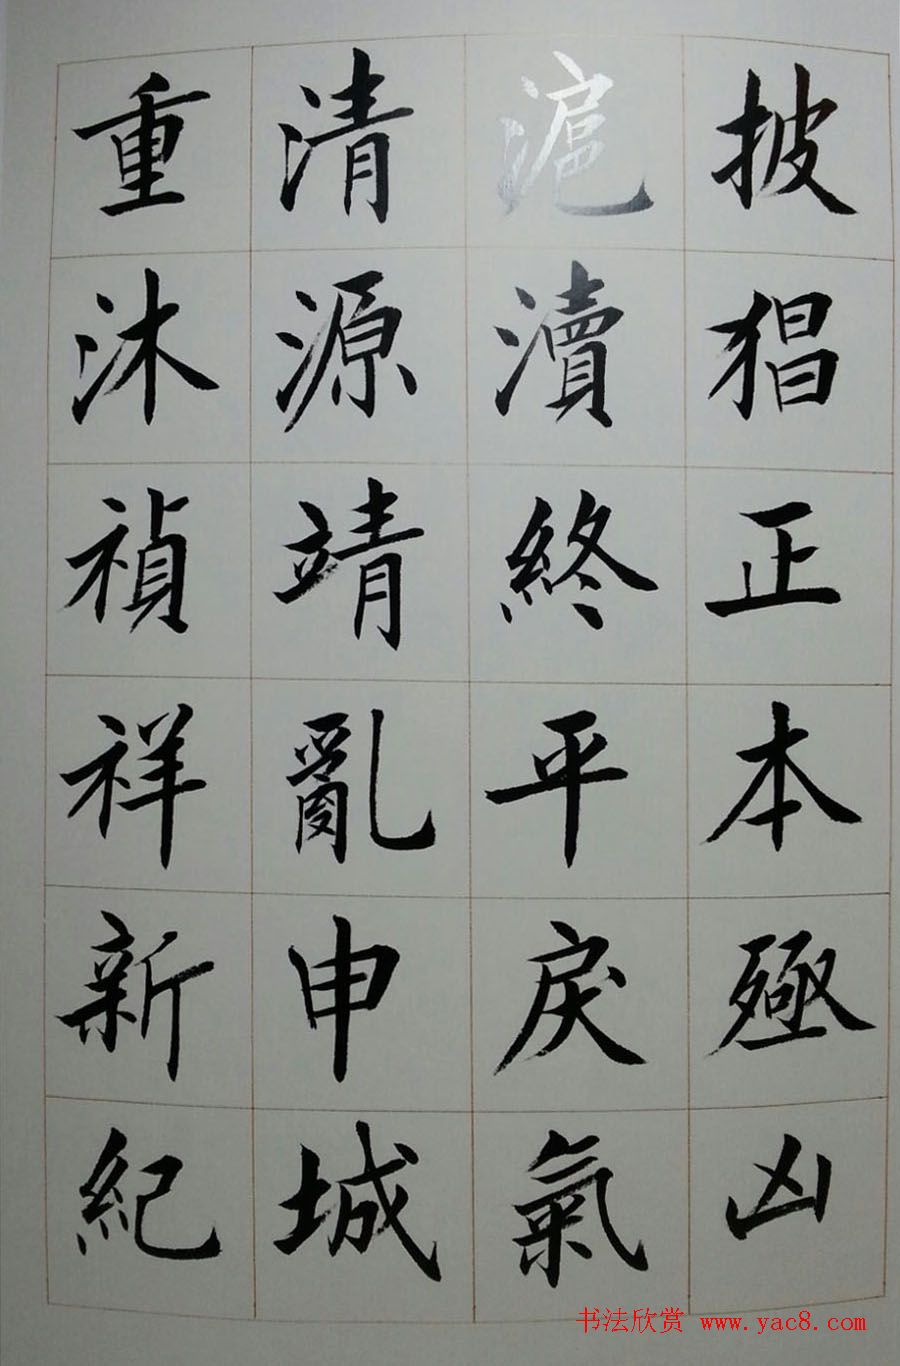 披猖正本殛凶
滬瀆終平戾氣
清源靖亂申城
重沐禎祥新紀
书法欣赏 www.yac8.com